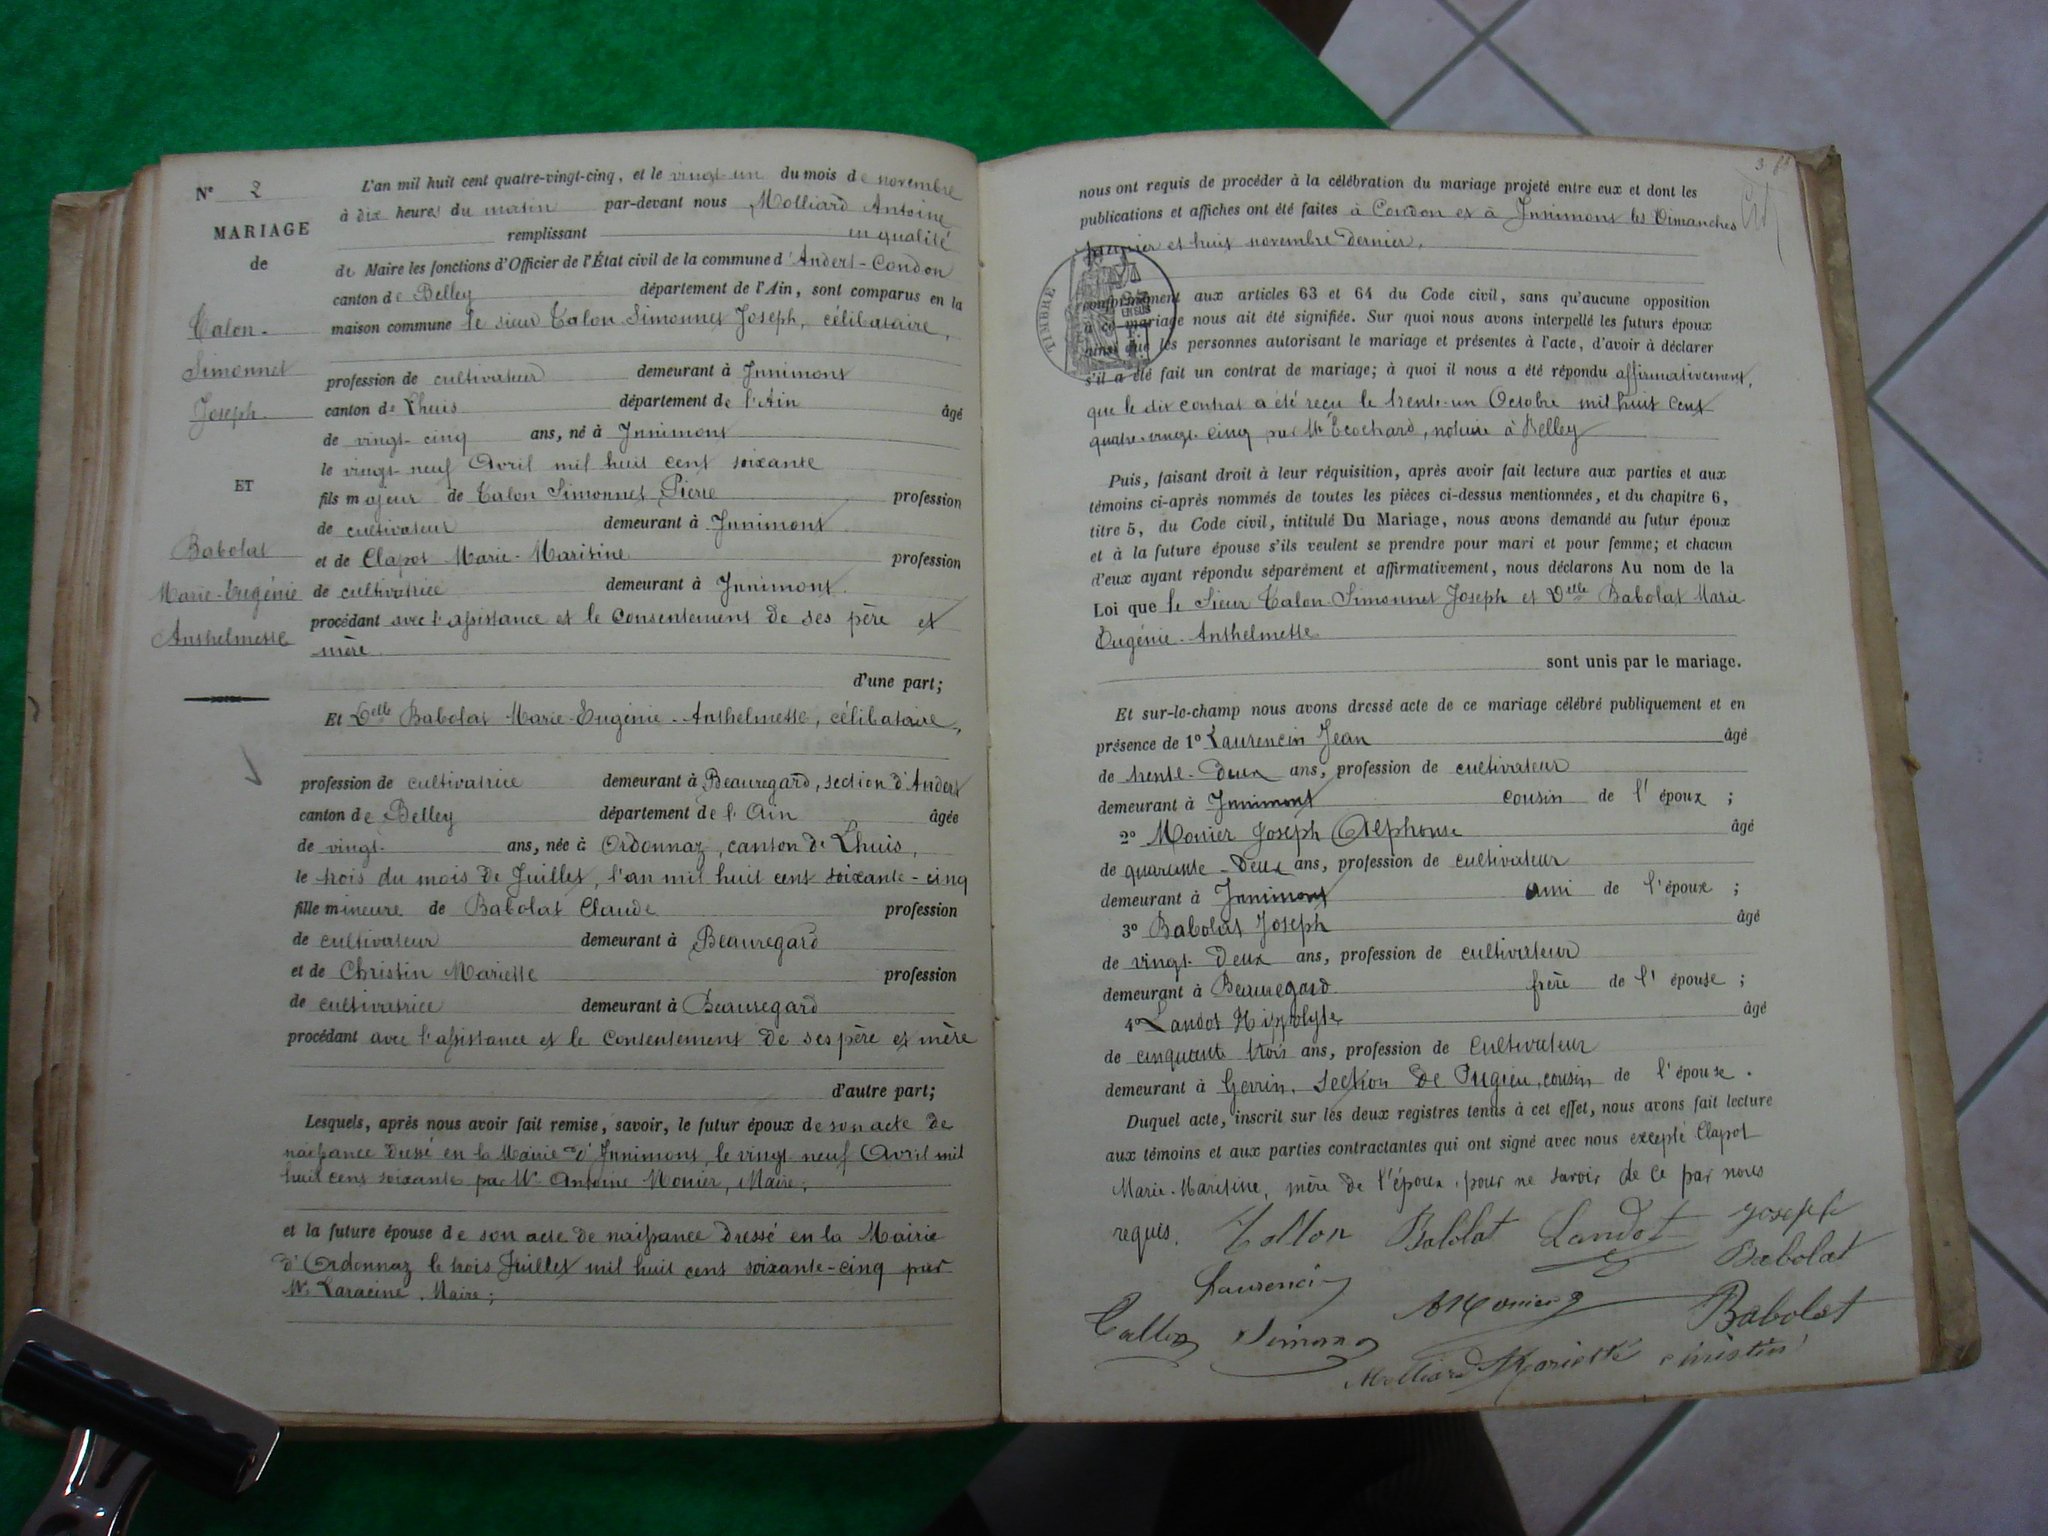 N° 2
MARIAGE
de
Talon-
Simonnet
Joseph.
ET
Babolat
Marie-Eugénie
Anthelmette
L'an mil huit cent quatre-vingt-cinq, et le vingt-un du mois de novembre
à dix heures du matin par-devant nous Molliard Antoine
remplissant en qualité
de Maire les fonctions d'Officier de l'État civil de la commune d'Andert-Condon
canton de Belley département de l'Ain, sont comparus en la
maison commune le sieur Talon-Simonnet Joseph, célibataire,
profession de cultivateur demeurant à Innimont
canton de Lhuis département de l'Ain âgé
de vingt-cinq ans, né à Innimont
le vingt-neuf Avril mil huit cent soixante
fils majeur de Talon Simonnet Pierre profession
de cultivateur demeurant à Innimont
et de Clapot Marie-Maritine profession
de cultivatrice demeurant à Innimont
procédant avec l'assistance et le consentement de ses père et
mère
d'une part;
Et Delle Babolat Marie-Eugénie-Anthelmette, célibataire,
profession de cultivatrice demeurant à Beauregard, section d'Andert
canton de Belley département de l'Ain âgée
de vingt ans, née à Ordonnaz, canton de Lhuis,
le trois du mois de Juillet, l'an mil huit cent soixante-cinq
fille mineure de Babolat Claude profession
de cultivateur demeurant à Beauregard
et de Christin Mariette profession
de cultivatrice demeurant à Beauregard
procédant avec l'assistance et le consentement de ses père et mère
d'autre part;
Lesquels, après nous avoir fait remise, savoir, le futur époux de son acte de
naissance dressé en la Mairie d'Innimont, le vingt-neuf Avril mil
huit cent soixante par Mr Antoine Monier, Maire;
et la future épouse de son acte de naissance dressé en la Mairie
d'Ordonnaz le trois Juillet mil huit cent soixante-cinq par
Mr Laracine, Maire;
nous ont requis de procéder à la célébration du mariage projeté entre eux et dont les
publications et affiches ont été faites à Condon et à Innimont les Dimanches
premier et huit novembre dernier,
TIMBRE
conformément aux articles 63 et 64 du Code civil, sans qu'aucune opposition
à ce mariage nous ait été signifiée. Sur quoi nous avons interpellé les futurs époux
ainsi que les personnes autorisant le mariage et présentes à l'acte, d'avoir à déclarer
s'il a été fait un contrat de mariage; à quoi il nous a été répondu affirmativement,
que le dit contrat a été reçu le trente-un Octobre mil huit cent
quatre-vingt-cinq par Me Ecochard, notaire à Belley
Puis, faisant droit à leur réquisition, après avoir fait lecture aux parties et aux
témoins ci-après nommés de toutes les pièces ci-dessus mentionnées, et du chapitre 6,
titre 5, du Code civil, intitulé Du Mariage, nous avons demandé au futur époux
et à la future épouse s'ils veulent se prendre pour mari et pour femme; et chacun
d'eux ayant répondu séparément et affirmativement, nous déclarons Au nom de la
Loi que le Sieur Talon-Simonnet Joseph et Delle Babolat Marie
Eugénie-Anthelmette
sont unis par le mariage.
Et sur-le-champ nous avons dressé acte de ce mariage célébré publiquement et en
présence de 1° Laurencin Jean âgé
de trente-deux ans, profession de cultivateur
demeurant à Innimont cousin de l'époux ;
2° Monier Joseph Alphonse âgé
de quarante-deux ans, profession de cultivateur
demeurant à Innimont ami de l'époux ;
3° Babolat Joseph âgé
de vingt-deux ans, profession de cultivateur
demeurant à Beauregard frère de l'épouse ;
4° Landot Hippolyte âgé
de cinquante trois ans, profession de cultivateur
demeurant à Gevrin, section de Pugieu, cousin de l'épouse.
Duquel acte, inscrit sur les deux registres tenus à cet effet, nous avons fait lecture
aux témoins et aux parties contractantes qui ont signé avec nous excepté Clapot
Marie-Maritine, mère de l'époux, pour ne savoir de ce par nous
requis.
Tallon Babolat Landot Joseph
Babolat
Laurencin
AMonier Babolat
Tallon Simon
Molliard Mariette Christin